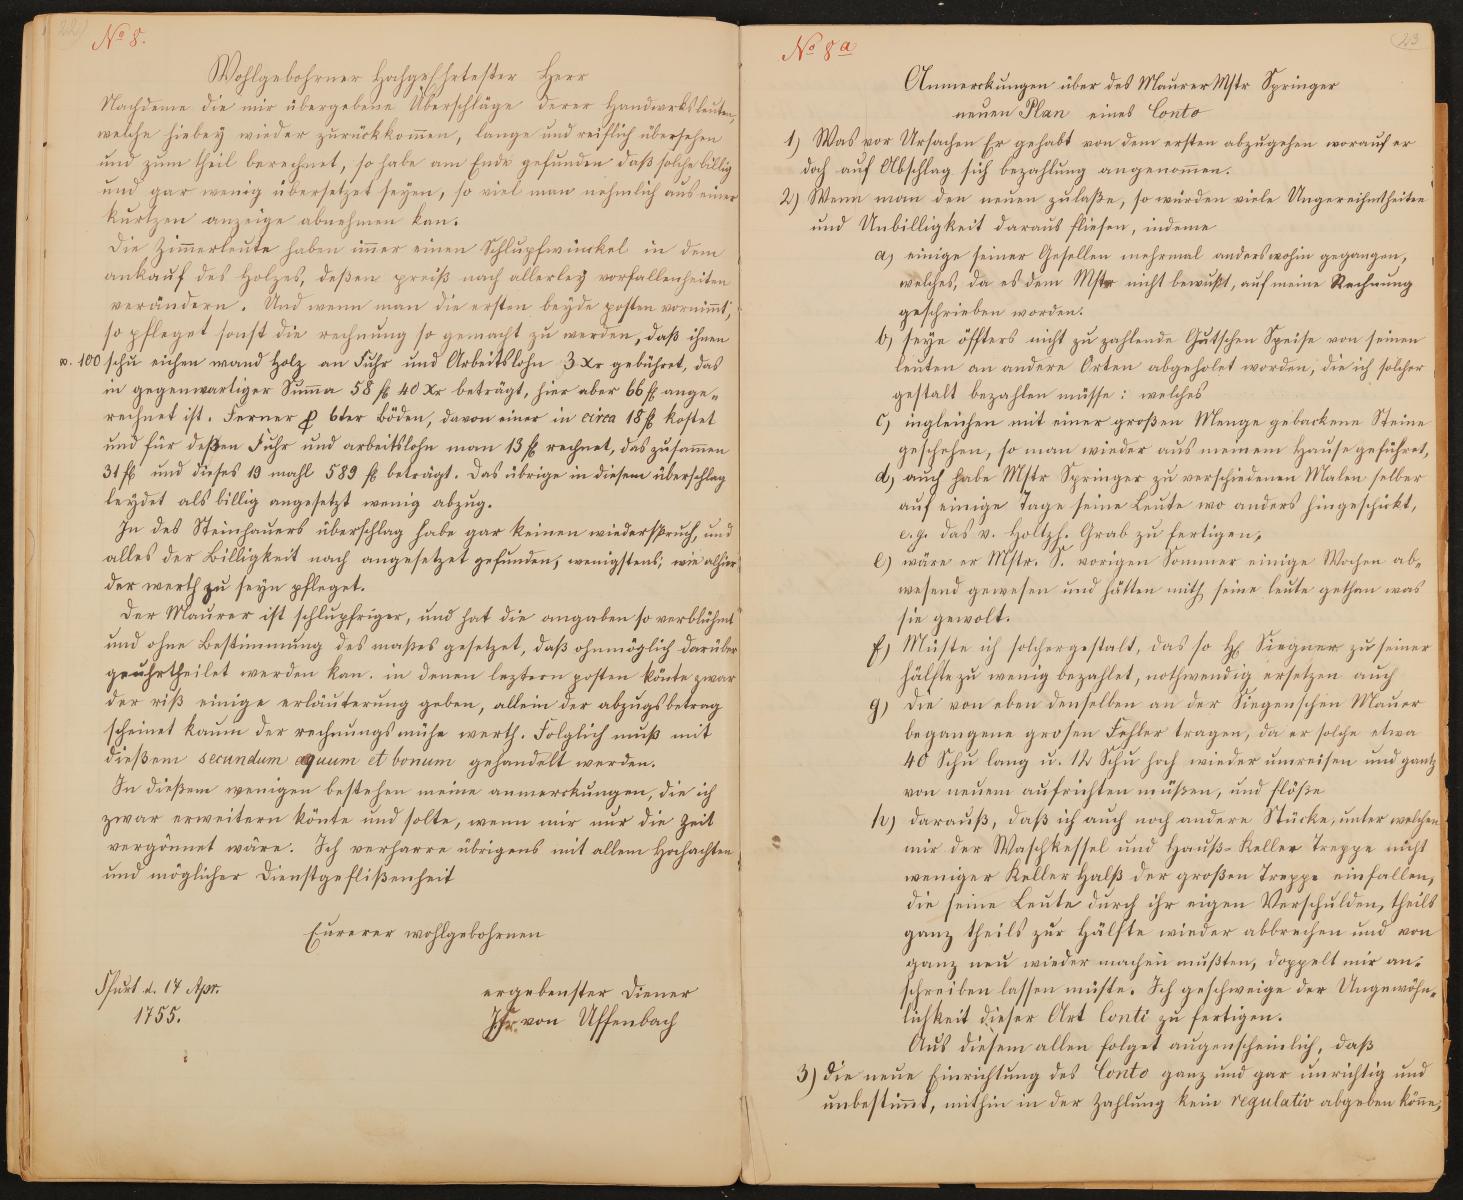 22)
No 8.
Wohlgebohrner Hochgeehrtester Herr
Nachdeme die mir übergebene Überschläge derer Handwerksleuten,
welche hiebey wieder zurückkom̄en, lange und reiflich übersehen
und zum theil berechnet, so habe am Ende gefunden daß solche billig
und gar wenig übersetzet seyen, so viel man nehmlich aus einer
kurtzen anzeige abnehmen kan.
Die Zim̄erleute haben im̄er einen Schlupfwinckel in dem
ankauf des Holzes, deßen preiß nach allerley vorfallenheiten
verändern. Und wenn man die ersten beyde posten vornim̄t,
so pfleget sonst die rechnung so gemacht zu werden, daß ihnen
v. 100 schu eichen wand Holz an Fuhr und Arbeitslohn 3 Xr gebühret, das
in gegenwartiger Sum̄a 58 fl 40 Xr beträgt, hier aber 66 fl ange-
rechnet ist. Ferner 6ter Böden, davon einer in circa 18 fl kostet
und für deßen Fuhr und arbeitslohn man 13 fl rechnet, das zusam̄en
31 fl und dieses 19 mahl 589 fl beträgt. Das übrige in diesem überschlag
leydet als billig angesetzt wenig abzug.
In des Steinhauers überschlag habe gar keinen wiederspruch, und
alles der Billigkeit nach angesetzet gefunden, wenigstens, wie alhier
der werth zu seyn pfleget.
Der Maurer ist schlupfriger, und hat die angaben so verblühmt
und ohne Bestimmung des maßes gesetzet, daß ohnmöglich darüber
geuhrtheilet werden kan. in denen leztern posten könte zwar
der riß einige erläuterung geben, allein der abzugsbetrag
scheinet kaum der rechnungsmühe werth. Folglich muß mit
dießem secundum aquum et bonum gehandelt werden.
In dießem wenigen bestehen meine anmerckungen, die ich
zwar erweitern könte und solte, wenn mir nur die Zeit
vergönnet wäre. Ich verharre übrigens mit allem Hochachten
und möglicher Dienstgeflißenheit
Eurerer wohlgebohrnen
Ffurt d. 17 Apr.
1755.
ergebenster Diener
von Uffenbach
23
No 8a
Anmerckungen über des Maurer Mstr Springer
neuen Plan eines Conto
1) Was vor Ursachen Er gehabt von dem ersten abzugehen worauf er
doch auf Abschlag sich bezahlung angenom̄en.
2) Wenn man den neuen zulaße, so würden viele Ungereihmtheiten
und Unbilligkeit daraus fliesen, indeme
a) einige seiner Gesellen mehrmal anderswohin gegangen,
welches, da es dem Mstr nicht bewußt, auf meine Rechnung
geschrieben worden.
b) seye öffters nicht zu zahlende Gutschen Speise von seinen
leuten an andere Orten abgeholet worden, die ich solcher
gestalt bezahlen müsse: welches
c) ingleichen mit einer großen Menge gebackene Steine
geschehen, so man wieder aus meinem Hause geführet,
d) auch habe Mstr Springer zu verschiedenen Malen selber
auf einige Tage seine Leute wo anders hingeschickt,
e.g. das v. Holtzh. Grab zu fertigen,
e) wäre er Mstr. S. vorigen Sommer einige Wochen ab-
wesend gewesen und hätten mith. seine leute gethan was
sie gewolt.
f) Müste ich solchergestalt, das so H. Siegner zu seiner
hälfte zu wenig bezahlet, nothwendig ersetzen auch
g) die von eben denselben an der Siegenschen Mauer
begangene grosen Fehler tragen, da er solche etwa
40 Schu lang u. 12 Schu hoch wieder umreisen und gantz
von neuem aufrichten müßen, und flöße
h) darauß, daß ich auch noch andere Stücke, unter welchen
mir der Waschkessel und Hauß-Keller Treppe nicht
weniger Keller Halß der großen Treppe einfallen,
die seine Leute durch ihr eigen Verschulden, theils
ganz theils zur Hälfte wieder abbrechen und von
ganz neu wieder machen mußten, doppelt mir an-
schreiben lassen müste. Ich geschweige der Ungewöhn-
lichkeit dieser Art Conti zu fertigen.
Aus diesem allen folget augenscheinlich, daß
3) die neue Einrichtung des Conto ganz und gar unrichtig und
unbestim̄t, mithin in der Zahlung kein regulativ abgeben kön̄e,